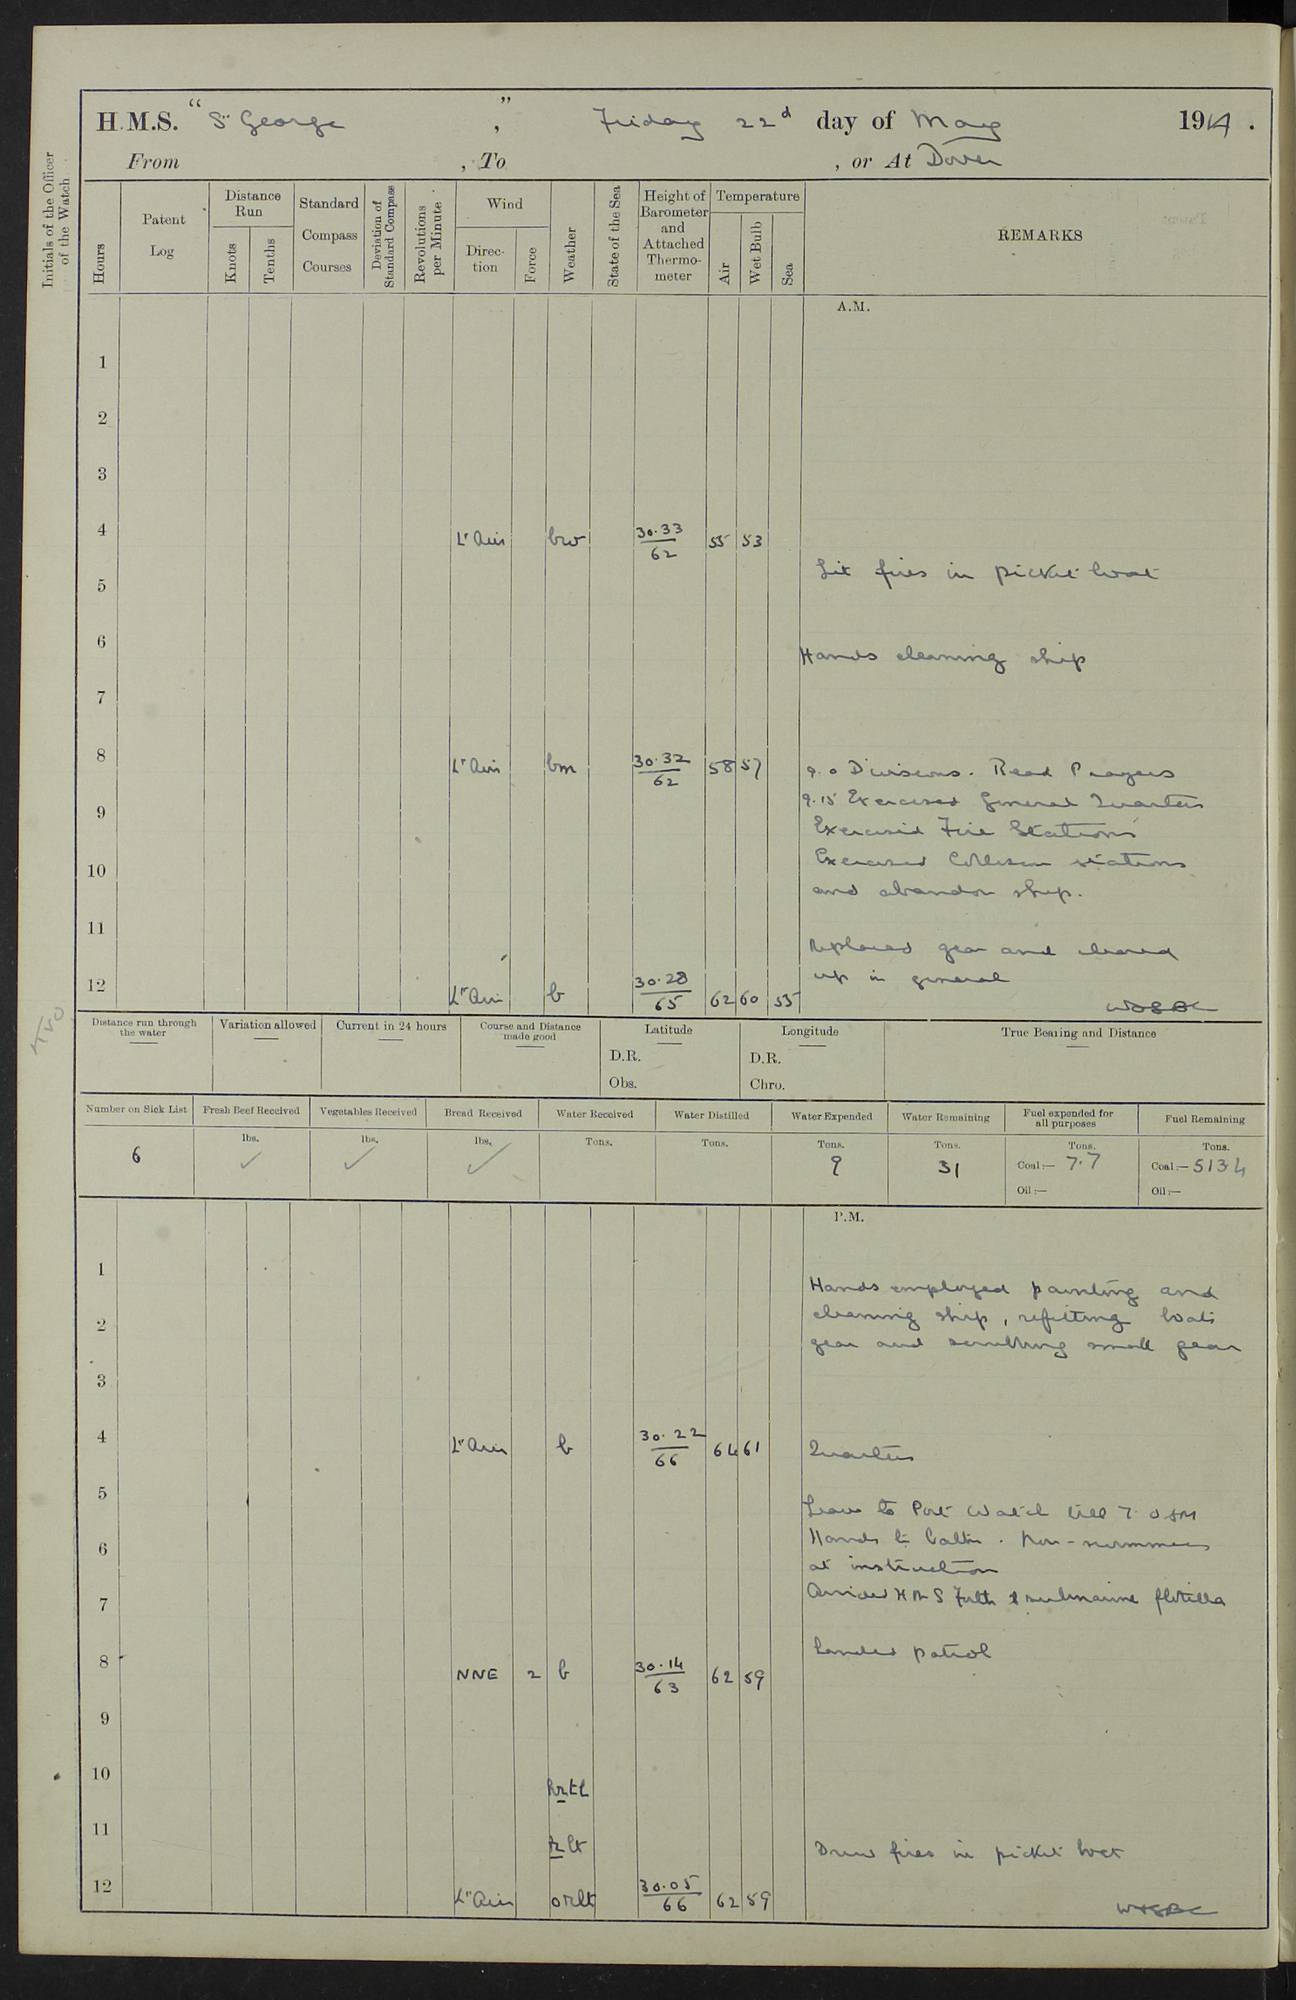 H.M.S. "St George", Friday 22d day of May 1914.
From , To , or At Dover
Initials of the Officer of the Watch
Hours
Patent Log
Distance Run
Knots
Tenths
Standard Compass Courses
Deviation of Standard Compass
Revolutions per Minute
Wind
Direction
Force
Weather
State of the Sea
Height of Barometer and Attached Thermometer
Temperature
Air
Wet Bulb
Sea
REMARKS
A.M.
1
2
3
4 Lt Airs bw 30.33/62 55 53
Lit fires in picket boat
5
6
Hands cleaning ship
7
8 Lt Airs bm 30.32/62 58 57
9.0 Divisions. Read Prayers
9.15 Exercised General Quarters
9
Exercised Fire Stations
Exercised Collision stations
10
and abandon ship.
11
Replaced gear and cleared
up in general
12 Lt Airs b 30.28/65 62 60 55
Two
Distance run through the water
Variation allowed
Current in 24 hours
Course and Distance made good
Latitude
D.R.
Obs.
Longitude
D.R.
Chro.
True Bearing and Distance
Number on Sick List
Fresh Beef Received
Vegetables Received
Bread Received
Water Received
Water Distilled
Water Expended
Water Remaining
Fuel expended for all purposes
Fuel Remaining
lbs. lbs. lbs. Tons. Tons. Tons. Tons. Tons. Tons.
6 ✓ ✓ ✓ 9 31 Coal:— 7.7 Coal:— 513.4
Oil:— Oil:—
P.M.
1
Hands employed painting and
cleaning ship, refitting boats
2
gear and scrubbing small gear
3
4 Lt Airs b 30.22/66 64 61 Quarters
5
Leave to Port Watch till 7.0 AM
6 Hands to bathe. Non-swimmers
at instruction
7 Arrived HMS Forth & submarine flotilla
Landed patrol
8 NNE 2 b 30.14/63 62 59
9
10
11 rlt
Drew fires in picket boat
12 Lt Airs orlt 30.05/66 62 59